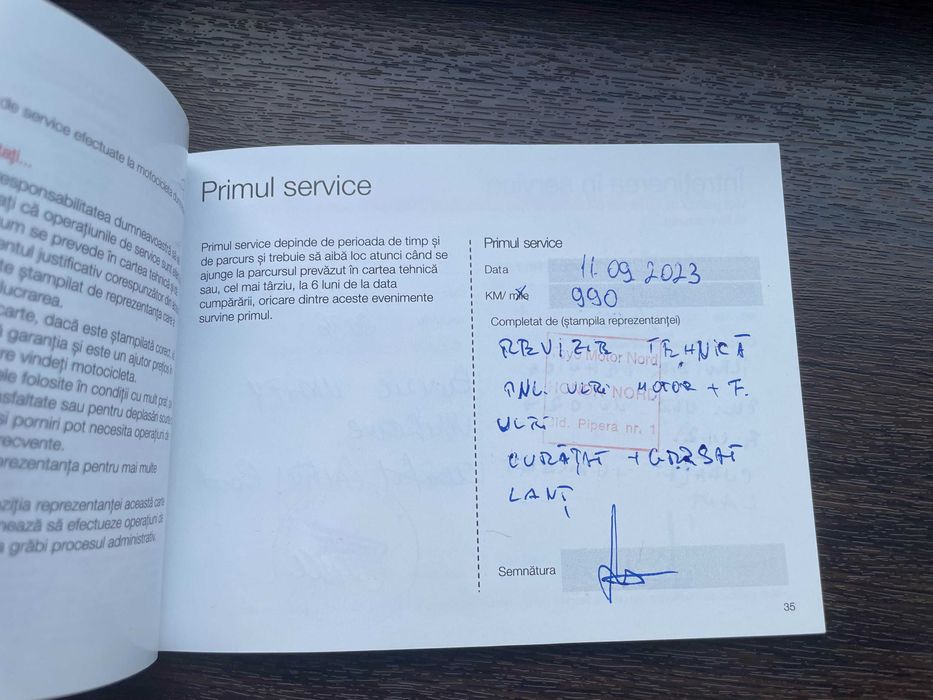 de service efectuate la motocicleta
tați...
responsabilitatea dumneavoastră să
ați că operațiunile de service sunt
um se prevede în cartea tehnică
antul justificativ corespunzător din
te ștampilat de reprezentanța care a
lucrarea.
carte, dacă este ștampilată corect,
garanția și este un ajutor prețios în
re vindeți motocicleta.
ele folosite în condiții cu mult praf,
asfaltate sau pentru deplasări scurte
și porniri pot necesita operațiuni de
recvente.
prezentanța pentru mai multe
ziția reprezentanței această carte
nează să efectueze operațiuni de
a grăbi procesul administrativ.
Primul service
Primul service depinde de perioada de timp și
de parcurs și trebuie să aibă loc atunci când se
ajunge la parcursul prevăzut în cartea tehnică
sau, cel mai târziu, la 6 luni de la data
cumpărării, oricare dintre aceste evenimente
survine primul.
Primul service
Data 11.09 2023
KM/ mile 990
Completat de (ștampila reprezentanței)
REVIZIE TEHNICĂ
ULEI MOTOR + F.
ULEI
CURĂȚAT + GRESAT
LANȚ
Motor Nord
NORD
Bld. Pipera nr. 1
Semnătura
35